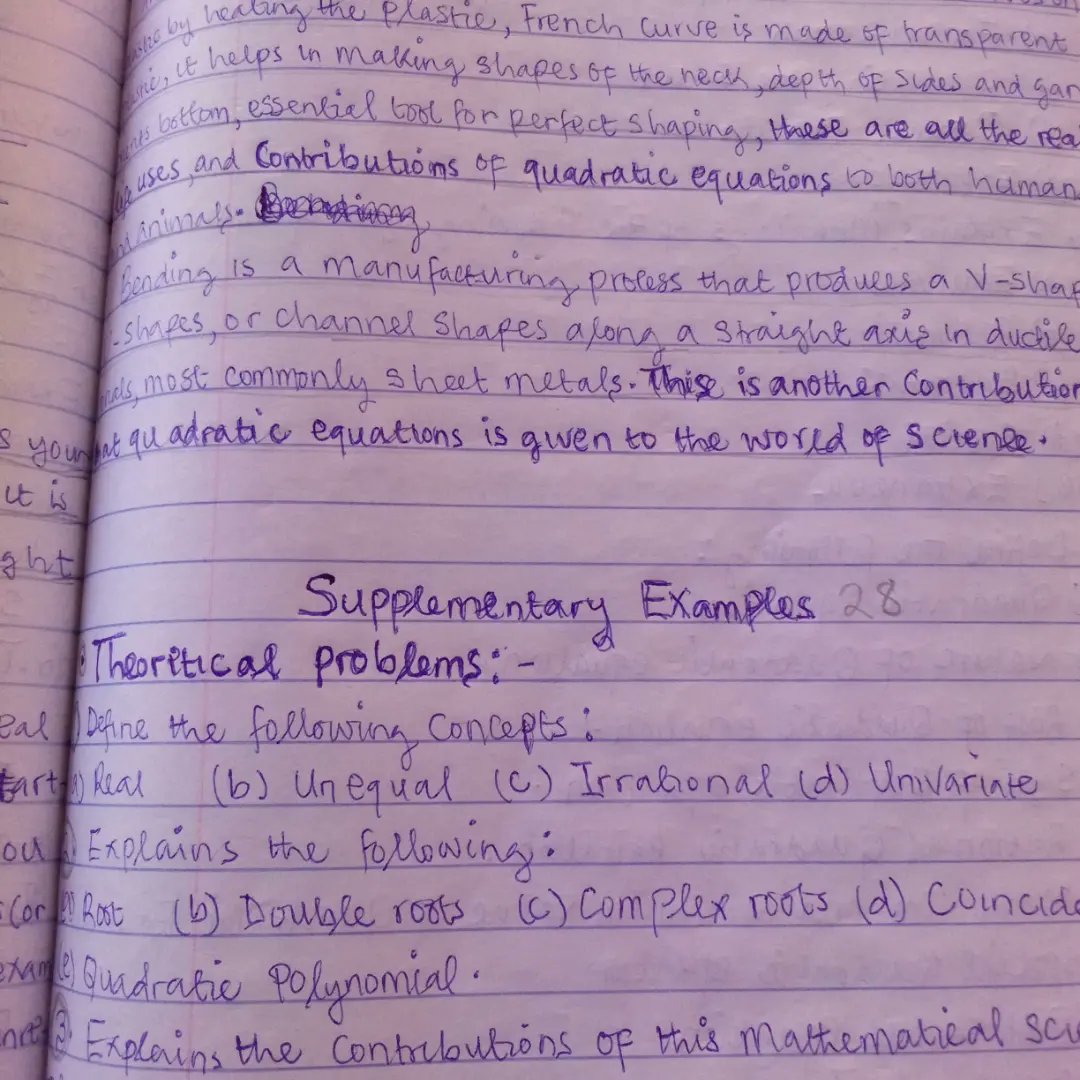 by heating the plastic, French curve is made of transparent
it helps in making shapes of the neck, depth of sides and gar
bottom, essential tool for perfect shaping, these are all the rea
uses, and Contributions of quadratic equations to both human
animals.
Bending is a manufacturing process that produces a V-shap
-shapes, or channel shapes along a straight axis in ductile
most commonly sheet metals. This is another Contribution
quadratic equations is given to the world of science.
s your
it is
ght
Supplementary Examples 28
Theoritical problems:-
eal
Define the following Concepts:
tart
a) Real (b) Unequal (c) Irrational (d) Univariate
ou
Explains the following:
Root (b) Double roots (c) Complex roots (d) Coincide
exam
(e) Quadratic Polynomial.
3. Explains the Contributions of this Mathematical sci